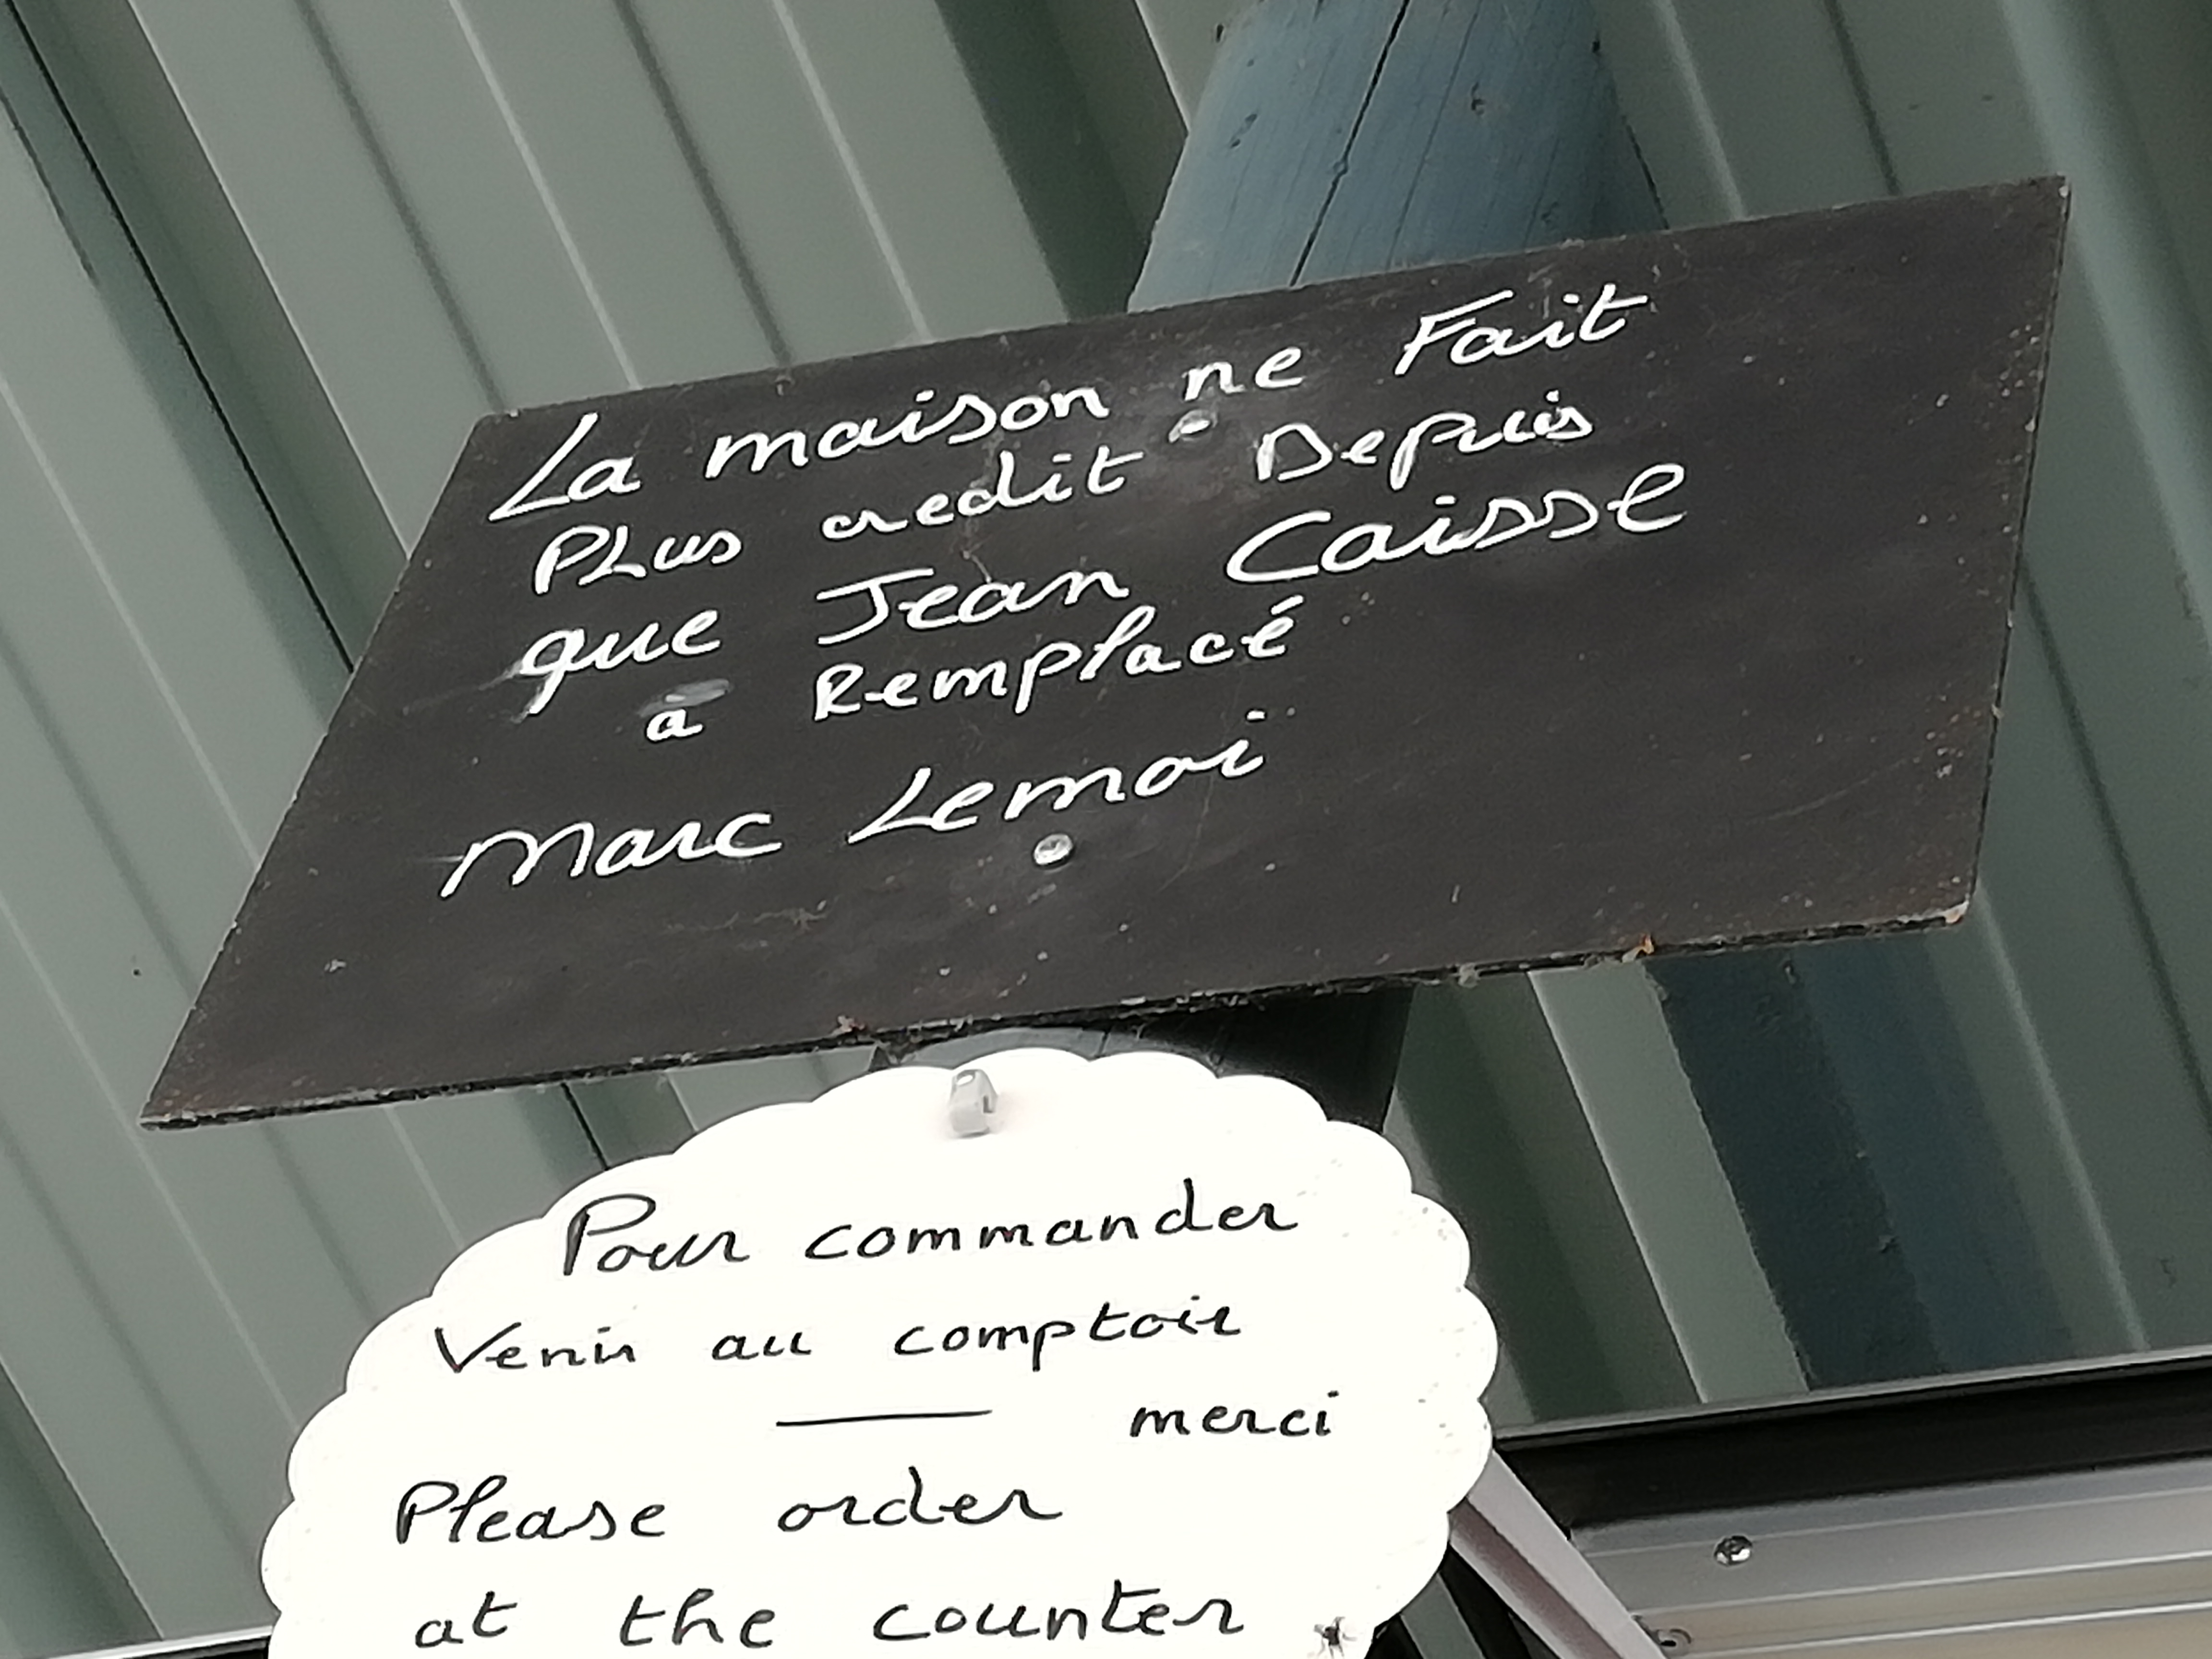 La maison ne Fait
PLus credit Depuis
que Jean Caisse
a Remplacé
Marc Lemoi
Pour commander
Venir au comptoir
merci
Please order
at the counter